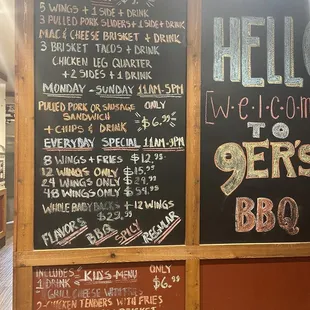 5 WINGS + 1 SIDE + DRINK
3 PULLED PORK SLIDERS + 1 SIDE + DRINK
MAC & CHEESE BRISKET + DRINK
3 BRISKET TACOS + DRINK
CHICKEN LEG QUARTER
+ 2 SIDES + 1 DRINK
MONDAY - SUNDAY 11AM-5PM
PULLED PORK OR SAUSAGE ONLY
SANDWICH
+ CHIPS & DRINK $6.99
EVERYDAY SPECIAL 11AM-9PM
8 WINGS + FRIES $12.99
12 WINGS ONLY $15.99
24 WINGS ONLY $29.99
48 WINGS ONLY $54.99
WHOLE BABYBACKS + 12 WINGS
$29.99
FLAVORS BBQ SPICY REGULAR
HELLO
WELCOM
TO
9ER'S
BBQ
INCLUDES KID'S MENU ONLY
1 DRINK $6.99
GRILL CHEESE WITH FRIES
2 CHICKEN TENDERS WITH FRIES
BRISKET